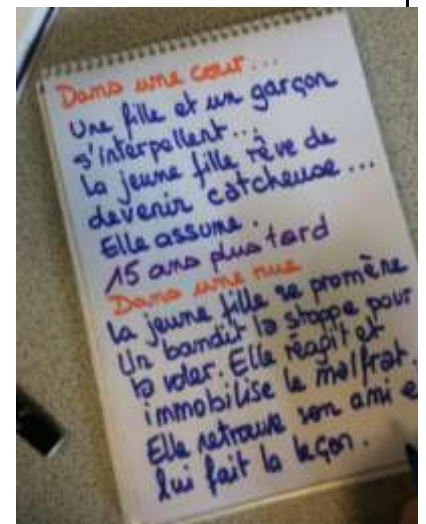 Dans une cour...
Une fille et un garçon
s'interpellent...
La jeune fille rêve de
devenir catcheuse...
Elle assume.
15 ans plus tard
Dans une rue
La jeune fille se promène
Un bandit la stoppe pour
la voler. Elle réagit et
immobilise le malfrat.
Elle retrouve son ami e
lui fait la leçon.